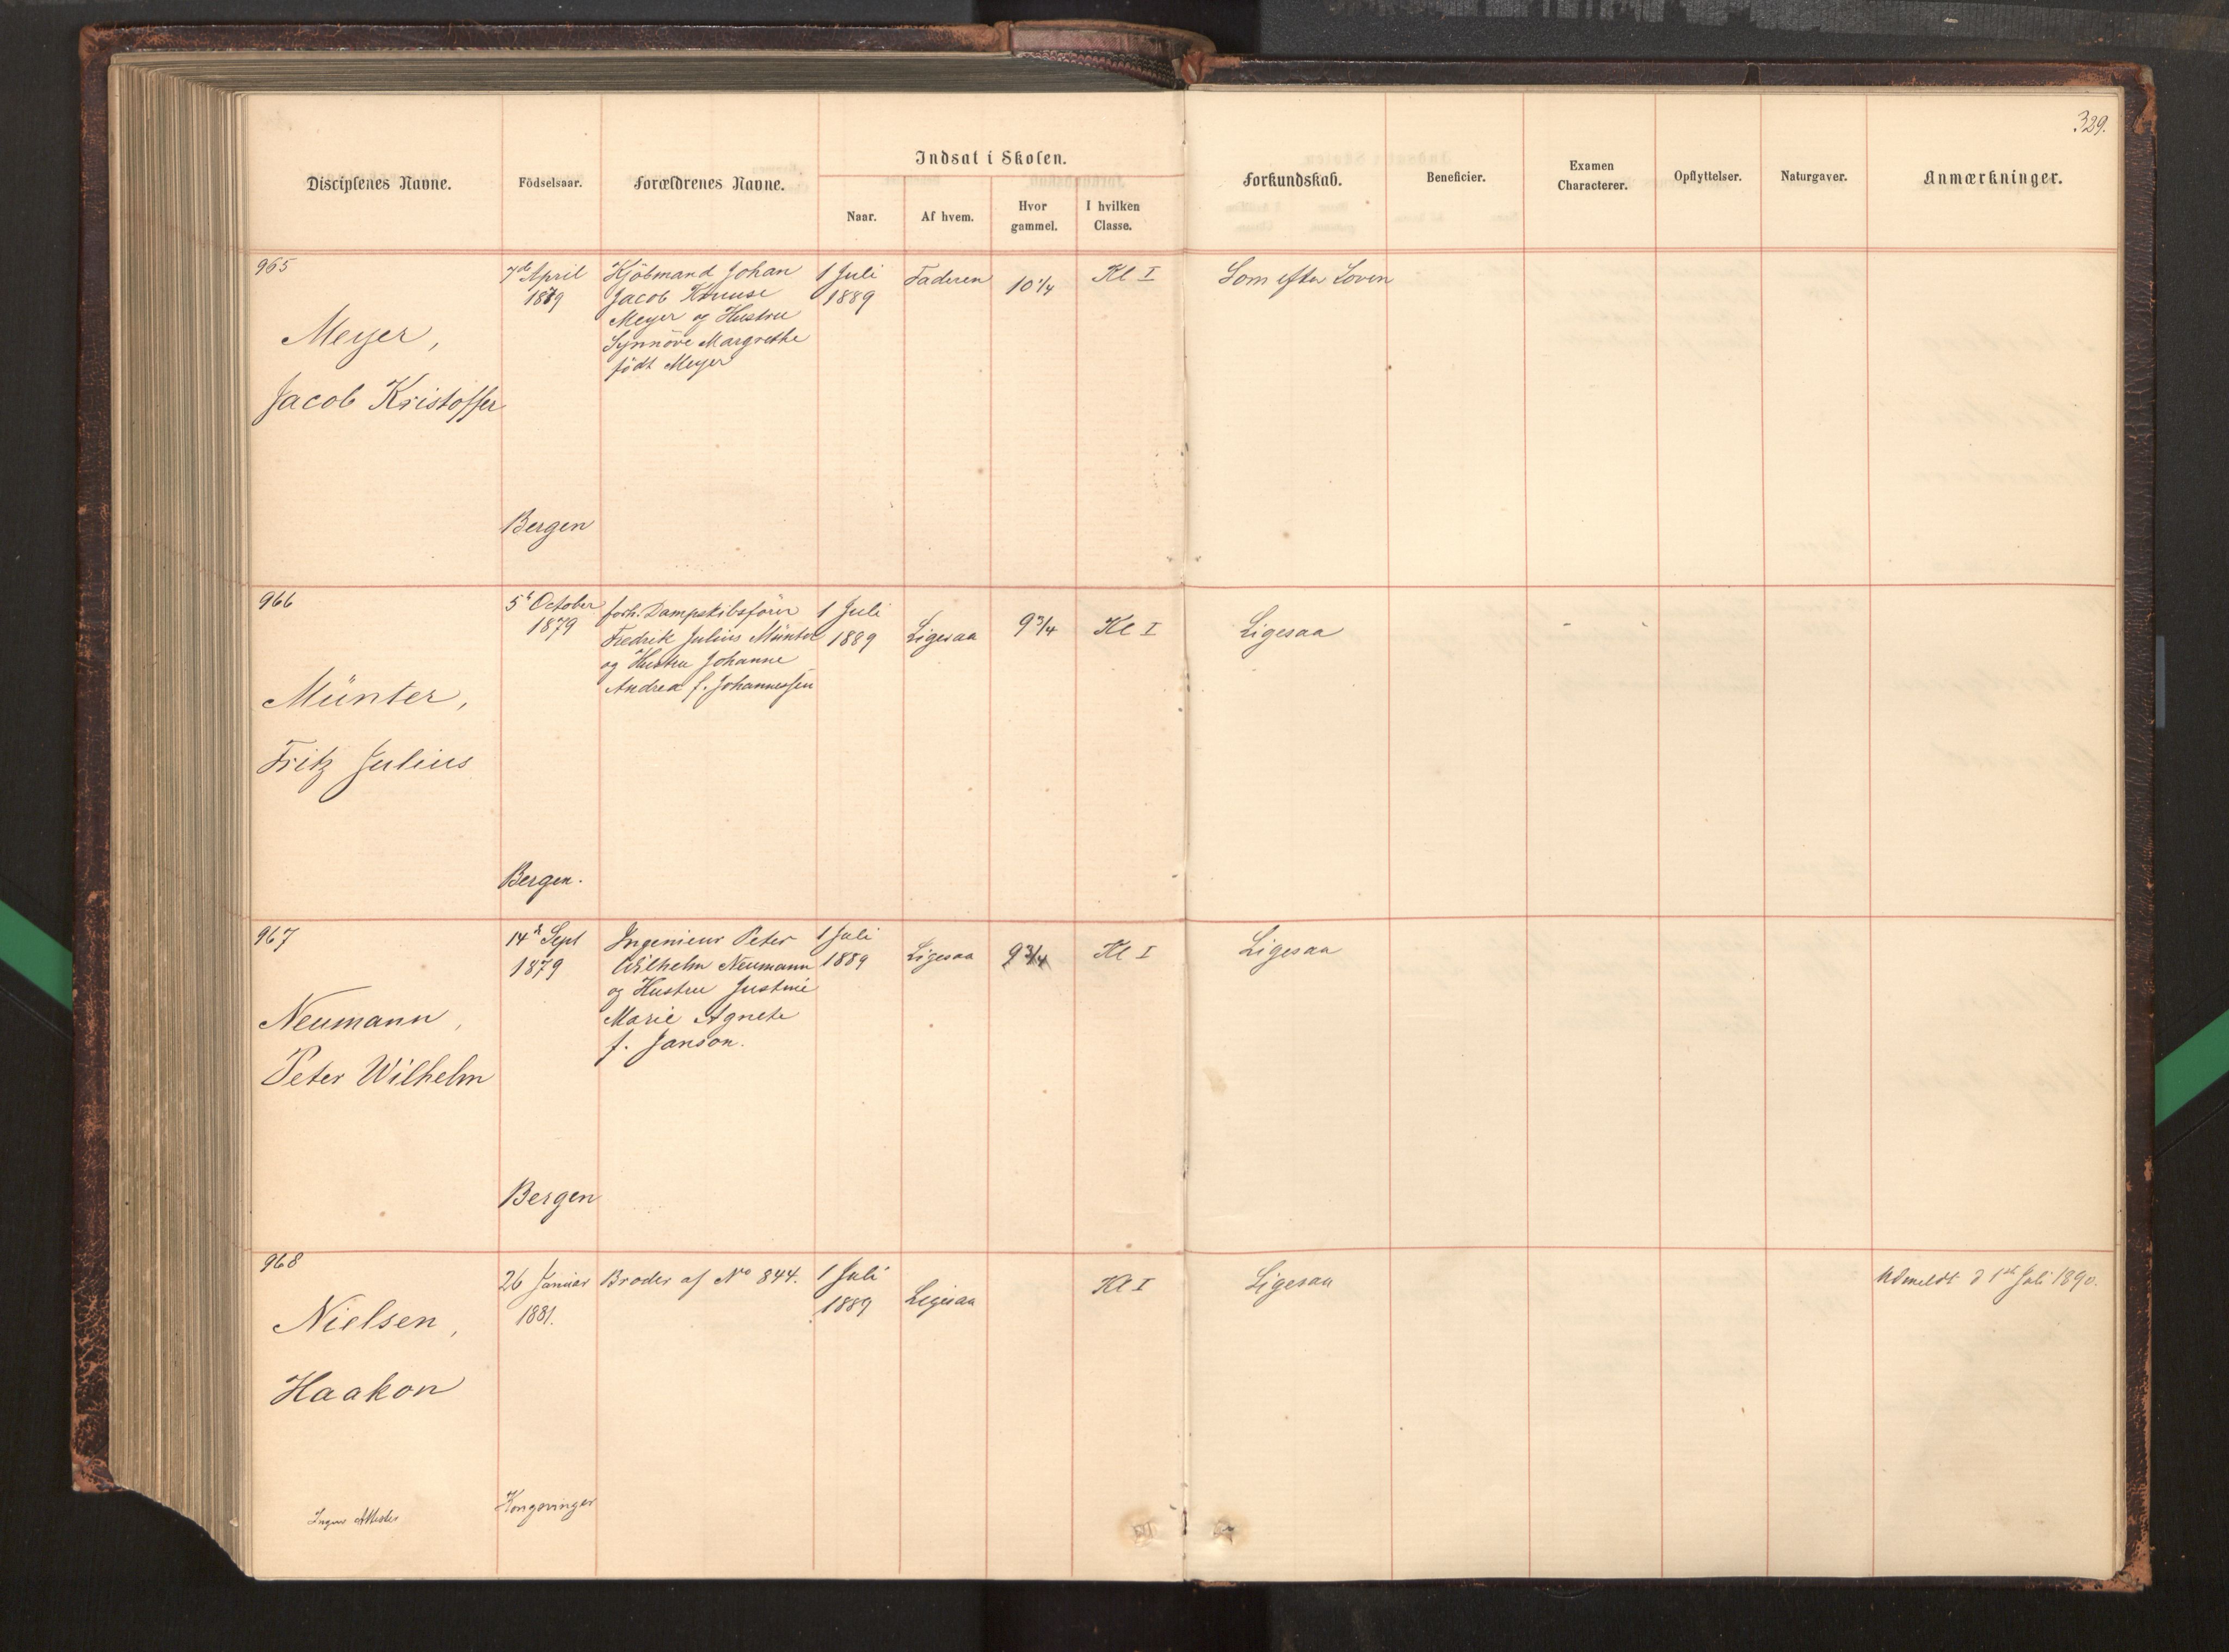 329.
Disciplenes Navne.
Födselsaar.
Forældrenes Navne.
Indsat i Skolen.
Naar.
Af hvem.
Hvor gammel.
I hvilken Classe.
Forkundskab.
Beneficier.
Examen Characterer.
Opflyttelser.
Naturgaver.
Anmærkninger.
965
Meyer,
Jacob Kristoffer
7de April
1879
Bergen
Kjöbmand Johan
Jacob Kruuse
Meyer og Hustru
Synnöve Margrethe
födt Meyer
1 Juli
1889
Faderen
10 1/4
Kl I
Som efter Loven
966
Münter,
Fritz Julius
5t October
1879
Bergen.
forh. Dampskibsförer
Fredrik Julius Münter
og Hustru Johanne
Andrea f. Johannessen
1 Juli
1889
Ligesaa
9 3/4
Kl I
Ligesaa
967
Neumann,
Peter Wilhelm
14 Sept
1879
Bergen
Ingenieur Peter
Wilhelm Neumann
og Hustru Justine
Marie Agnete
f. Janson.
1 Juli
1889
Ligesaa
9 3/4
Kl I
Ligesaa
968
Nielsen,
Haakon
Ingen Attester
26 Januar
1881.
Kongsvinger
Broder af No 844.
1 Juli
1889
Ligesaa
Kl I
Ligesaa
Udmeldt d 1ste Juli 1890.